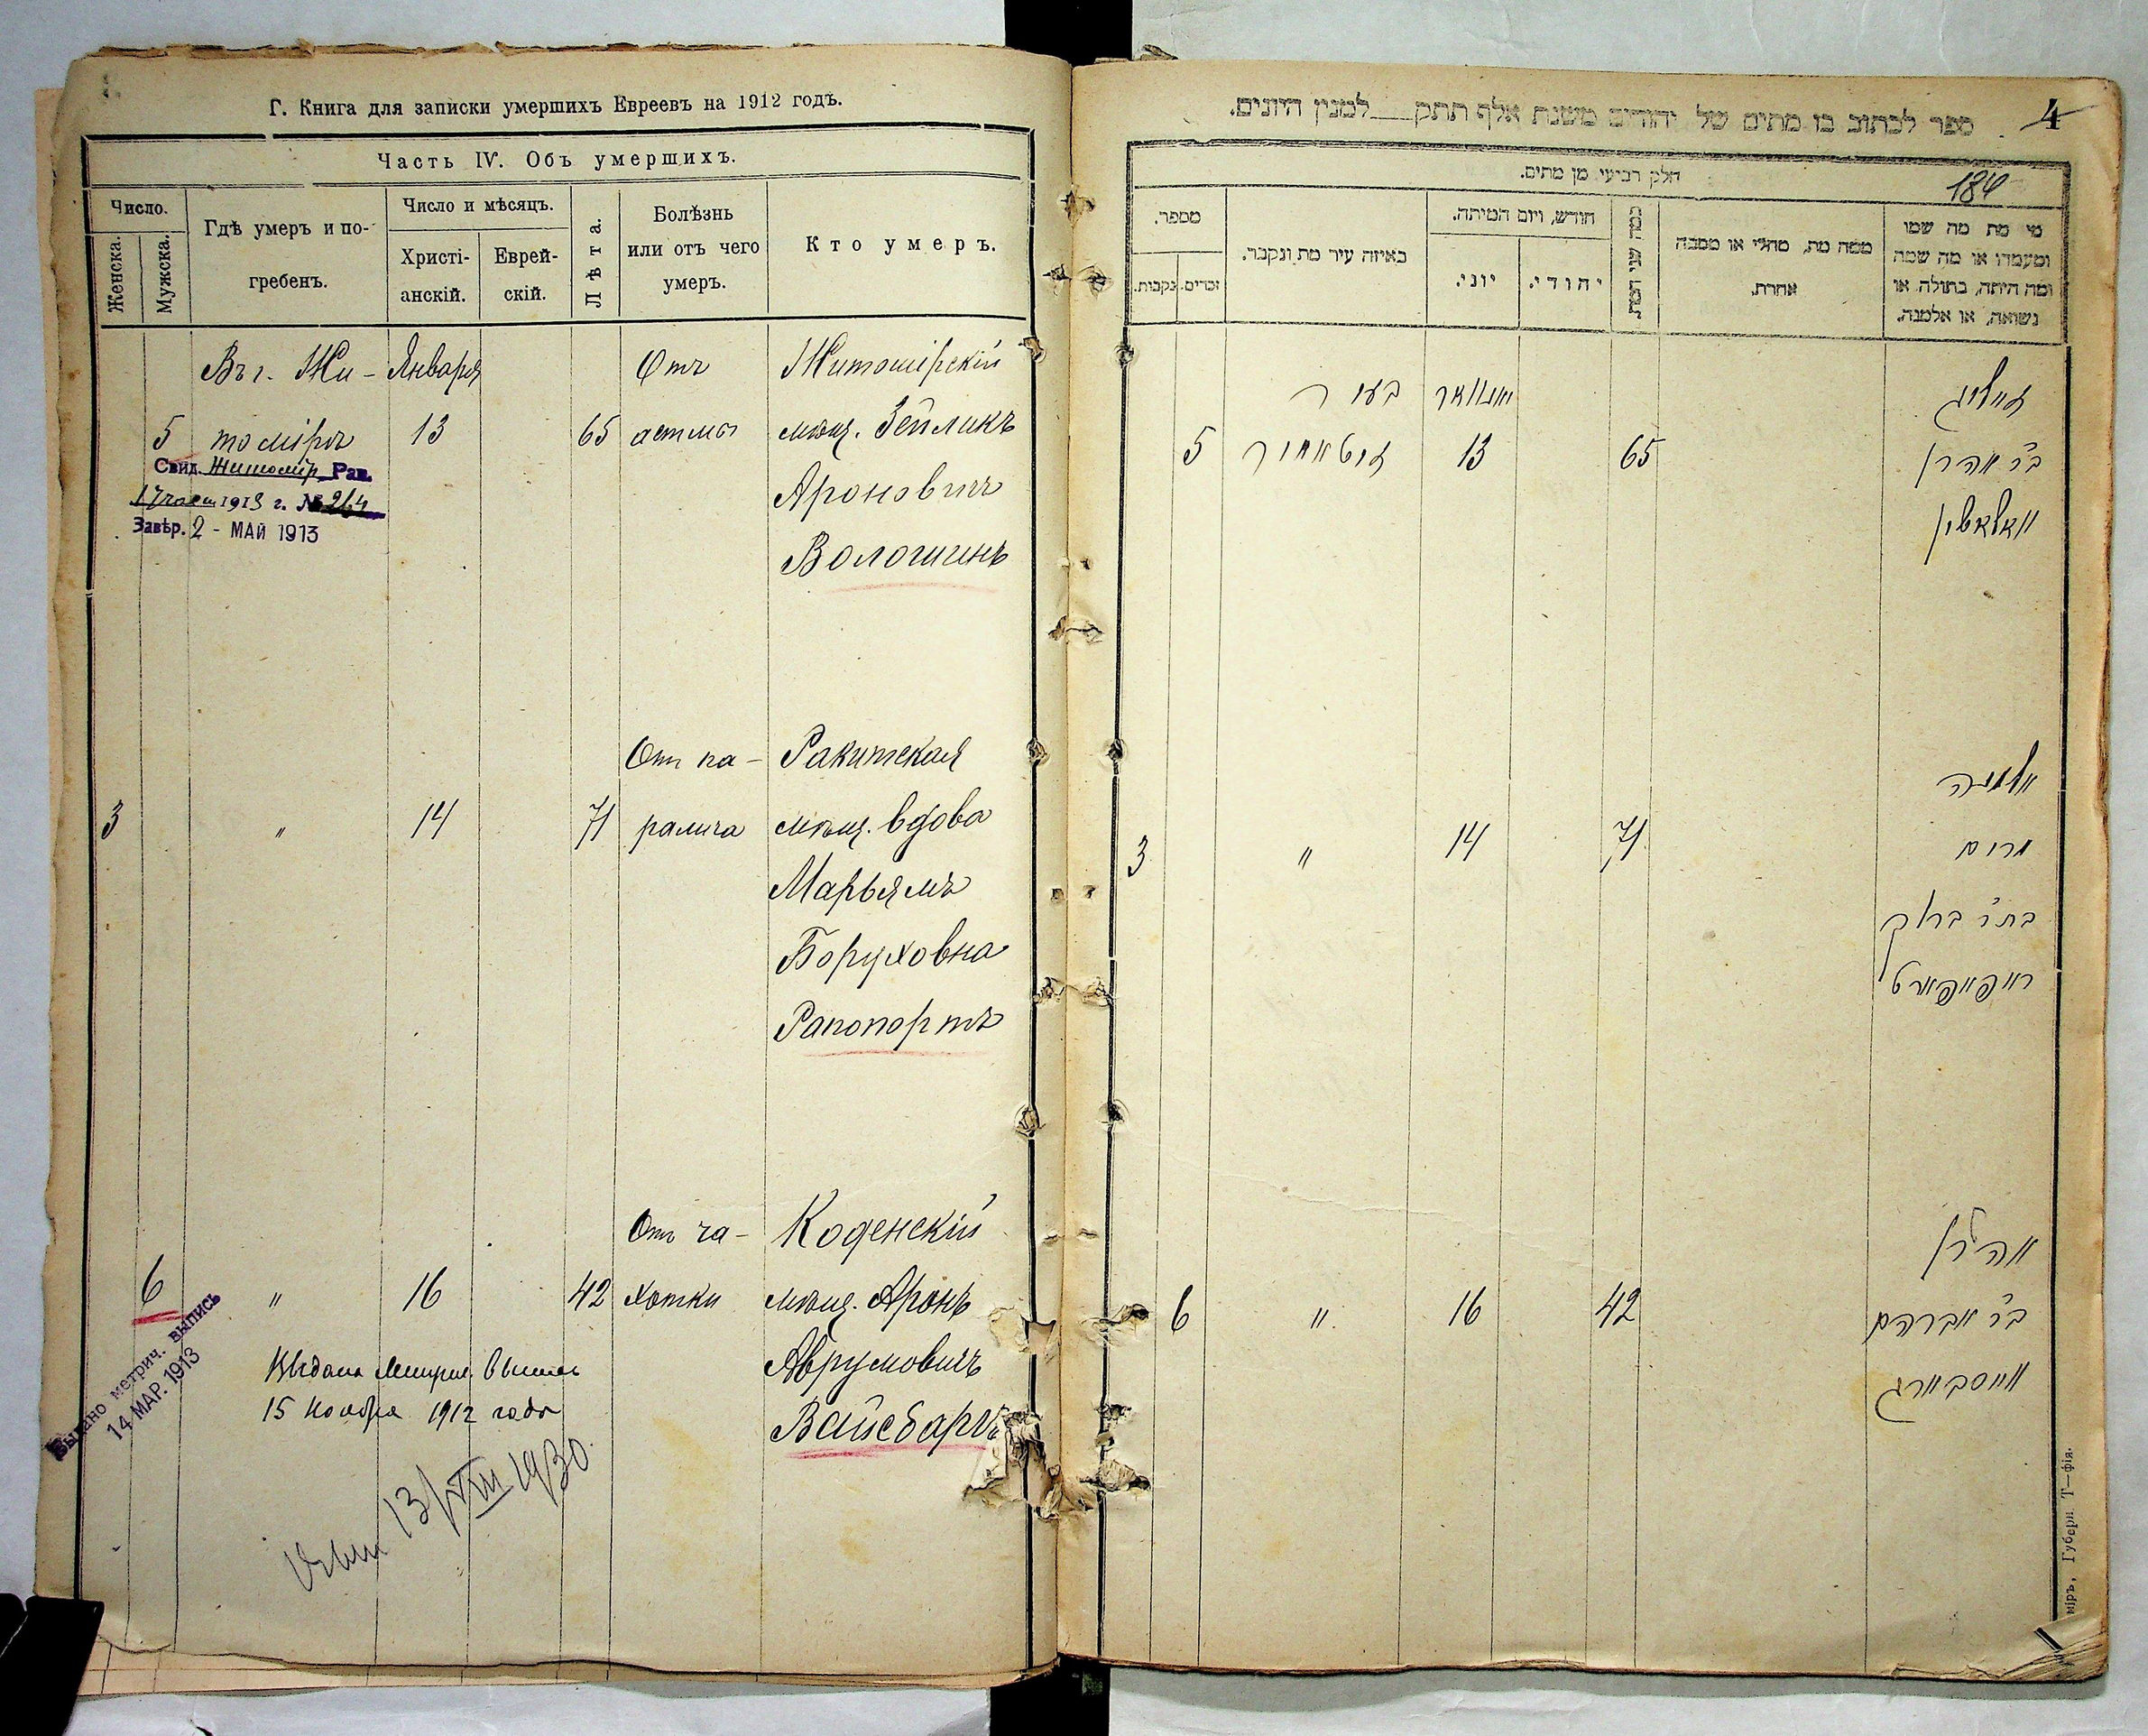 Г. Книга для записки умершихъ Евреевъ на 1912 годъ.
Часть IV. Объ умершихъ.
Число.
Женска.
Мужска.
Гдѣ умеръ и по-
гребенъ.
Число и мѣсяцъ.
Христі-
анскій.
Еврей-
скій.
Лѣта.
Болѣзнь
или отъ чего
умеръ.
Кто умеръ.
Въ г. Жи- Января Отъ Житомірскій
5 томірѣ 13 65 астмы мѣщ. Зейликъ
Ароновичъ
Волошинъ
Свид. Житомір Рав.
1913 г. № 264
Завѣр. 2 - МАЙ 1913
Отъ па- Ракитская
3 " 14 71 ралича мѣщ. вдова
Марьямъ
Боруховна
Рапопортъ
Отъ ча- Коденскій
6 " 16 42 хотки мѣщ. Аронъ
Аврумовичъ
Вайсбаргъ
Выдано метрич. выпись
14 МАР. 1913
Выдана Метрич. выпись
15 Ноября 1912 года
13/VIII 1930
4
ספר לכתוב בו מתים של יהודים משנת אלף תתק למנין היונים.
184
חלק רביעי מן מתים.
מספר.
זכרים.
נקבות.
באיזה עיר מת ונקבר.
חודש, ויום המיתה.
יוני.
יהודי.
כמה שני המת
ממה מת, מחלי או מסבה
אחרת.
מי מת מה שמו
ומעמדו או מה שמה
ומה היתה, בתולה או
נשואה, או אלמנה.
בעיר יאנואר זייליג
5 זיטאמיר 13 65 ב״ר אהרן
וואלאשין
אלמנה
3 " 14 71 מרים
בת ר׳ ברוך
ראפאפארט
אהרן
6 " 16 42 ב״ר אברהם
ווייסבארג
міръ, Губерн. Т—фія.